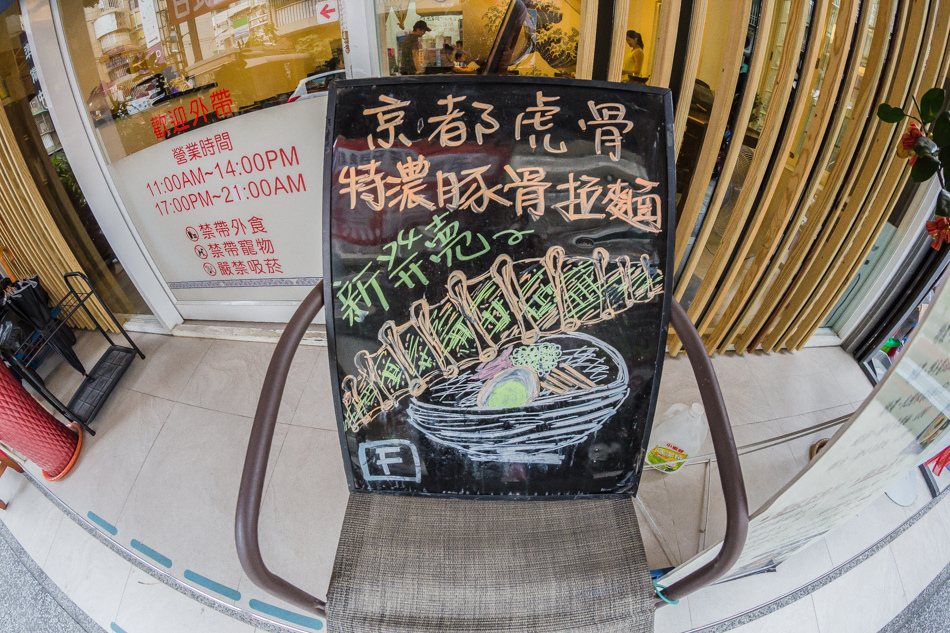 歡迎外帶
營業時間
11:00AM~14:00PM
17:00PM~21:00AM
禁帶外食
禁帶寵物
嚴禁吸菸
京都虎骨
特濃豚骨拉麵
新發売~
F